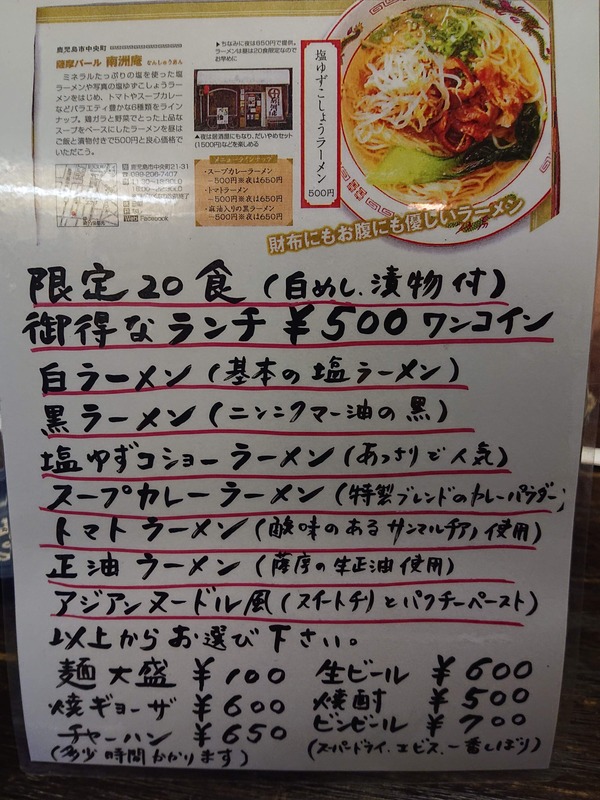 鹿児島市中央町
薩摩バール 南洲庵 なんしゅうあん
ミネラルたっぷりの塩を使った塩
ラーメンや写真の塩ゆずこしょうラー
メンをはじめ、トマトやスープカレー
などバラエティ豊かな6種類をライン
ナップ。鶏ガラと野菜でとった上品な
スープをベースにしたラーメンを昼は
ご飯と漬物付きで500円と良心価格で
いただこう。
鹿児島市中央町21-31
099-206-7407
Facebook
▶ちなみに夜は650円で提供。
ラーメンは昼は20食限定なので
お早めに
▲夜は居酒屋にもなり、だいやめセット
(1500円)などを楽しめる
メニューラインナップ
・スープカレーラーメン
―500円※夜は650円
・トマトラーメン
―500円※夜は650円
・麻油入りの黒ラーメン
―500円※夜は650円
塩ゆずこしょうラーメン
500円
財布にもお腹にも優しいラーメン
限定20食(白めし、漬物付)
御得なランチ¥500ワンコイン
白ラーメン(基本の塩ラーメン)
黒ラーメン(ニンニクマー油の黒)
塩ゆずコショーラーメン(あっさりで人気)
スープカレーラーメン(特製ブレンドのカレーパウダー)
トマトラーメン(酸味のあるサンマルチアノ使用)
正油ラーメン(薩摩の生正油使用)
アジアンヌードル風(スイートチリとパクチーペースト)
以上からお選び下さい。
麺大盛 ¥100 生ビール ¥600
焼ギョーザ ¥600 焼酎 ¥500
チャーハン ¥650 ビンビール ¥700
(多少時間かかります) (スーパードライ、エビス、一番しぼり)